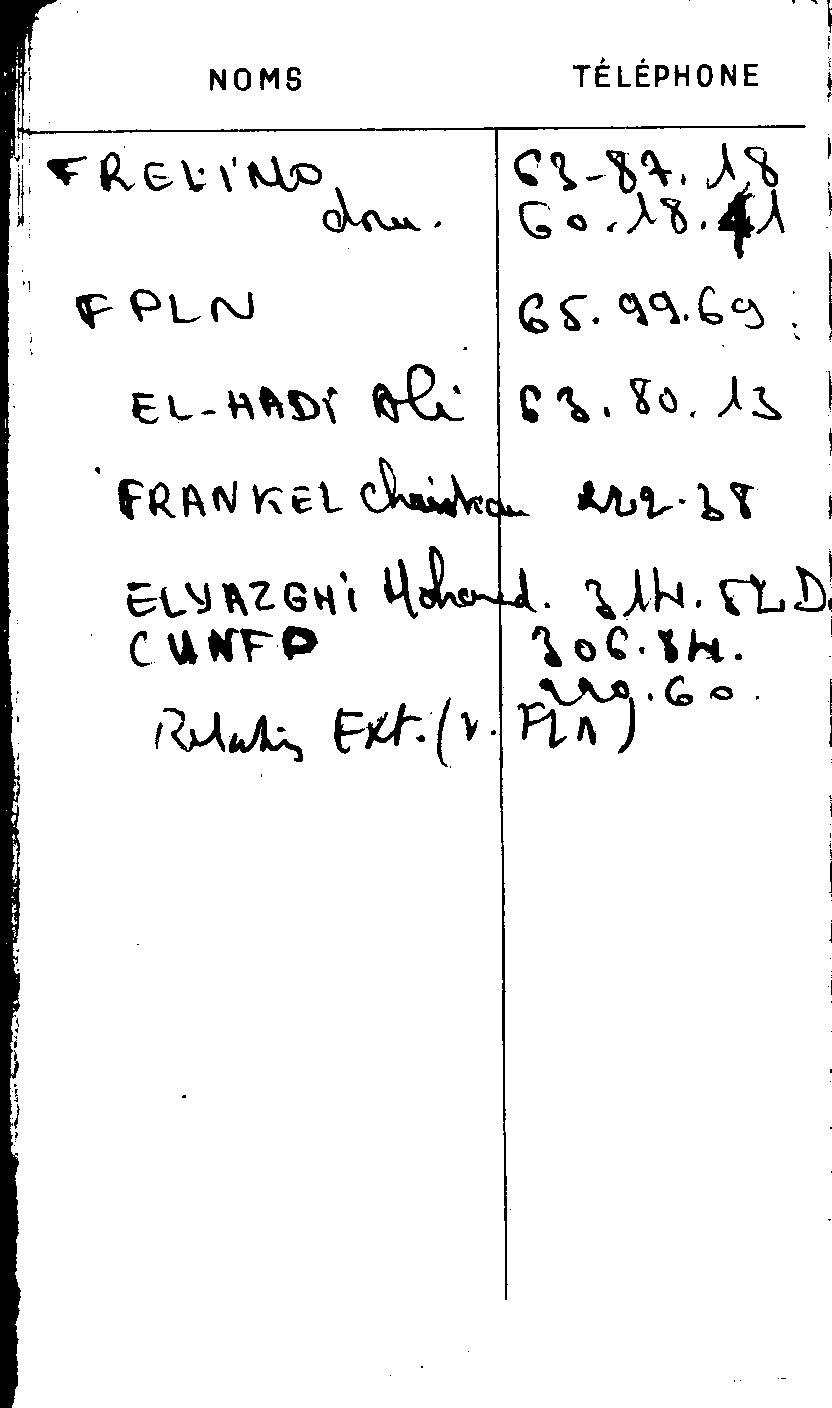 NOMS TÉLÉPHONE
FRELIMO 63-87.18
dom. 60.18.41
FPLN 65.99.69
EL-HADI Ali 63.80.13
FRANKEL Christian 222.38
ELYAZGHI Mohamed. 314.52 D.
CUNFP 306.84.
229.60.
Relatis Ext. (v. FLN)